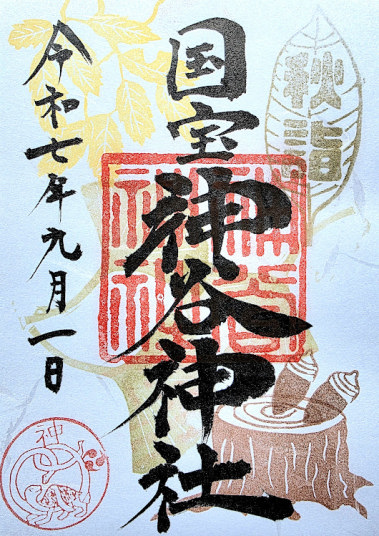 秋詣
国宝
神谷神社
令和七年九月一日
神谷
神社
神